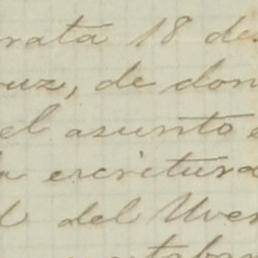 rata 18 de
uz, de don
el asunto
a escritura
del Uver